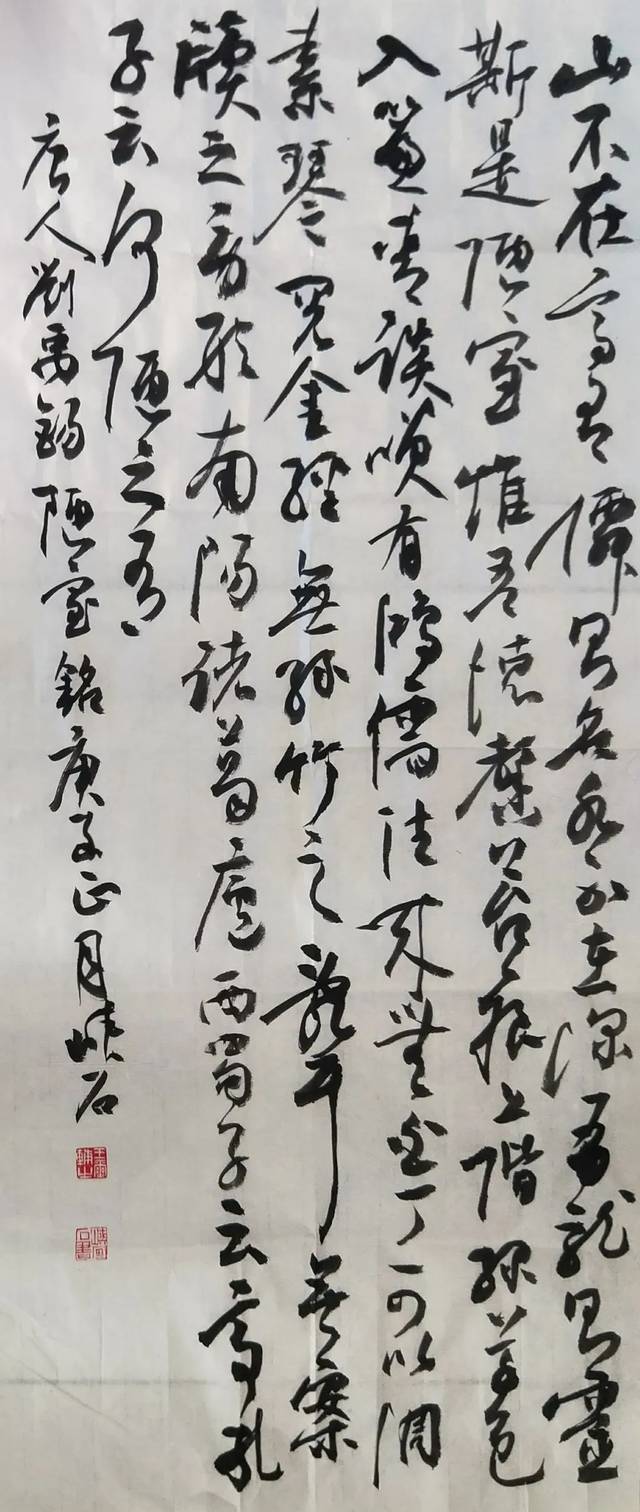 山不在高有僊則名水不在深有龍則靈
斯是陋室惟吾德馨苔痕上階綠草色
入簾青談咲有鴻儒往來無白丁可以調
素琴閱金經無絲竹之亂耳無案
牘之勞形南陽諸葛廬西蜀子云亭孔
子云何陋之有
唐人劉禹錫陋室銘庚子正月峽石